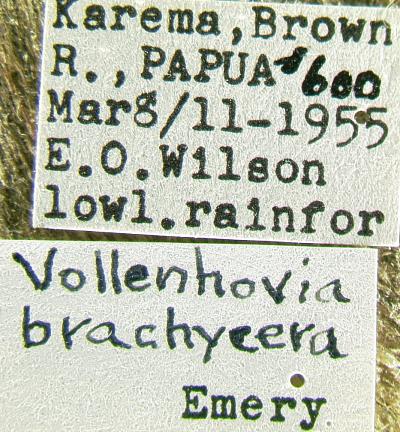 Karema, Brown
R., PAPUA #600
Mar8/11-1955
E.O. Wilson
lowl. rainfor
Vollenhovia
brachycera
Emery